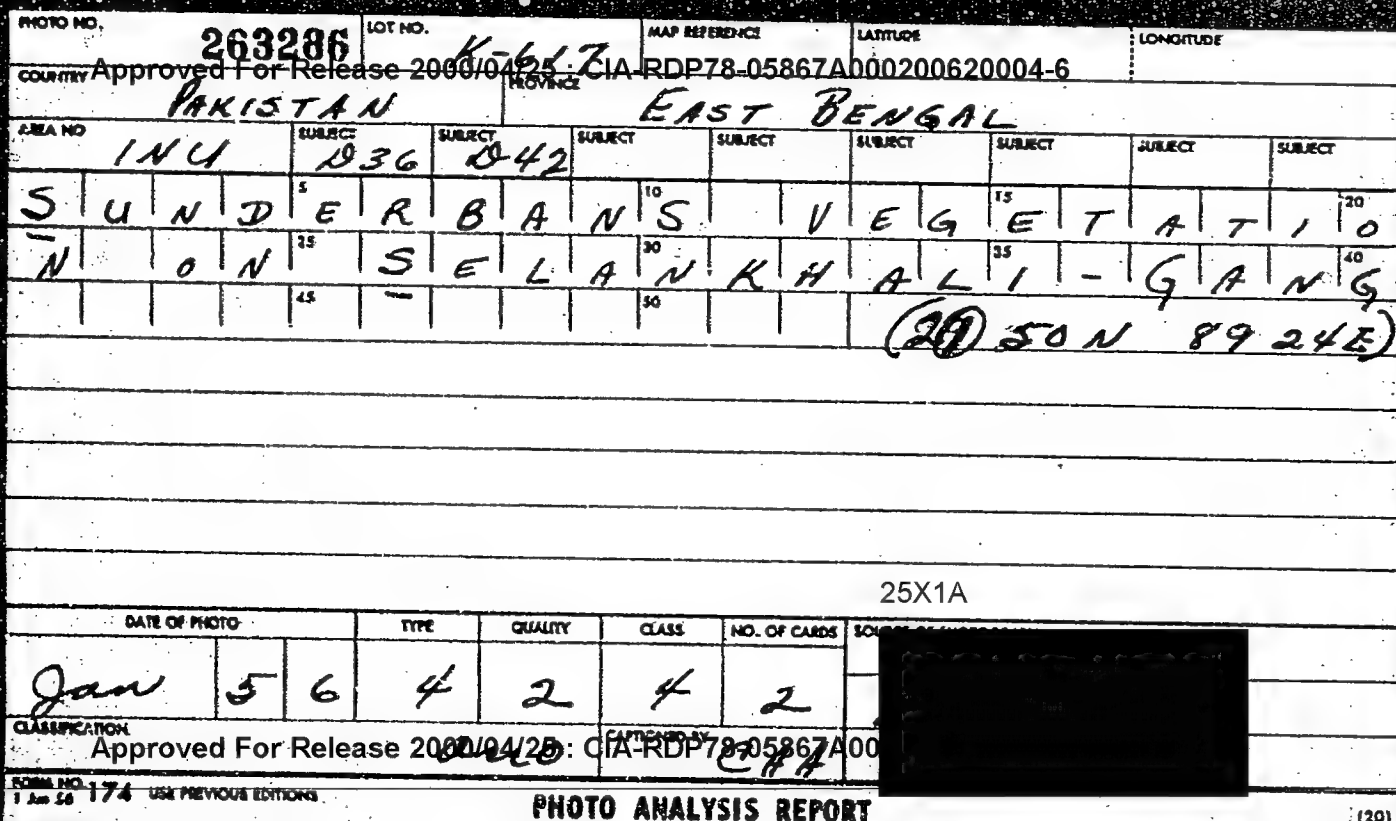 PHOTO NO. 263286 LOT NO. K-617 MAP REFERENCE LATITUDE LONGITUDE
Approved For Release 2000/04/25 : CIA-RDP78-05867A000200620004-6
COUNTRY PAKISTAN PROVINCE EAST BENGAL
AREA NO INU SUBJECT D36 SUBJECT D42 SUBJECT SUBJECT SUBJECT SUBJECT SUBJECT SUBJECT
5 10 15 20
SUNDERBANS VEGETATIO
25 30 35 40
N ON SELANKHALI-GANG
45 50
(21 50 N 89 24E)
25X1A
DATE OF PHOTO TYPE QUALITY CLASS NO. OF CARDS
Jan 5 6 4 2 4 2
CLASSIFICATION CAPTIONED BY
Approved For Release 2000/04/25 : CIA-RDP78-05867A00
FORM NO. 174 USE PREVIOUS EDITIONS
1 Jan 56
PHOTO ANALYSIS REPORT (20)